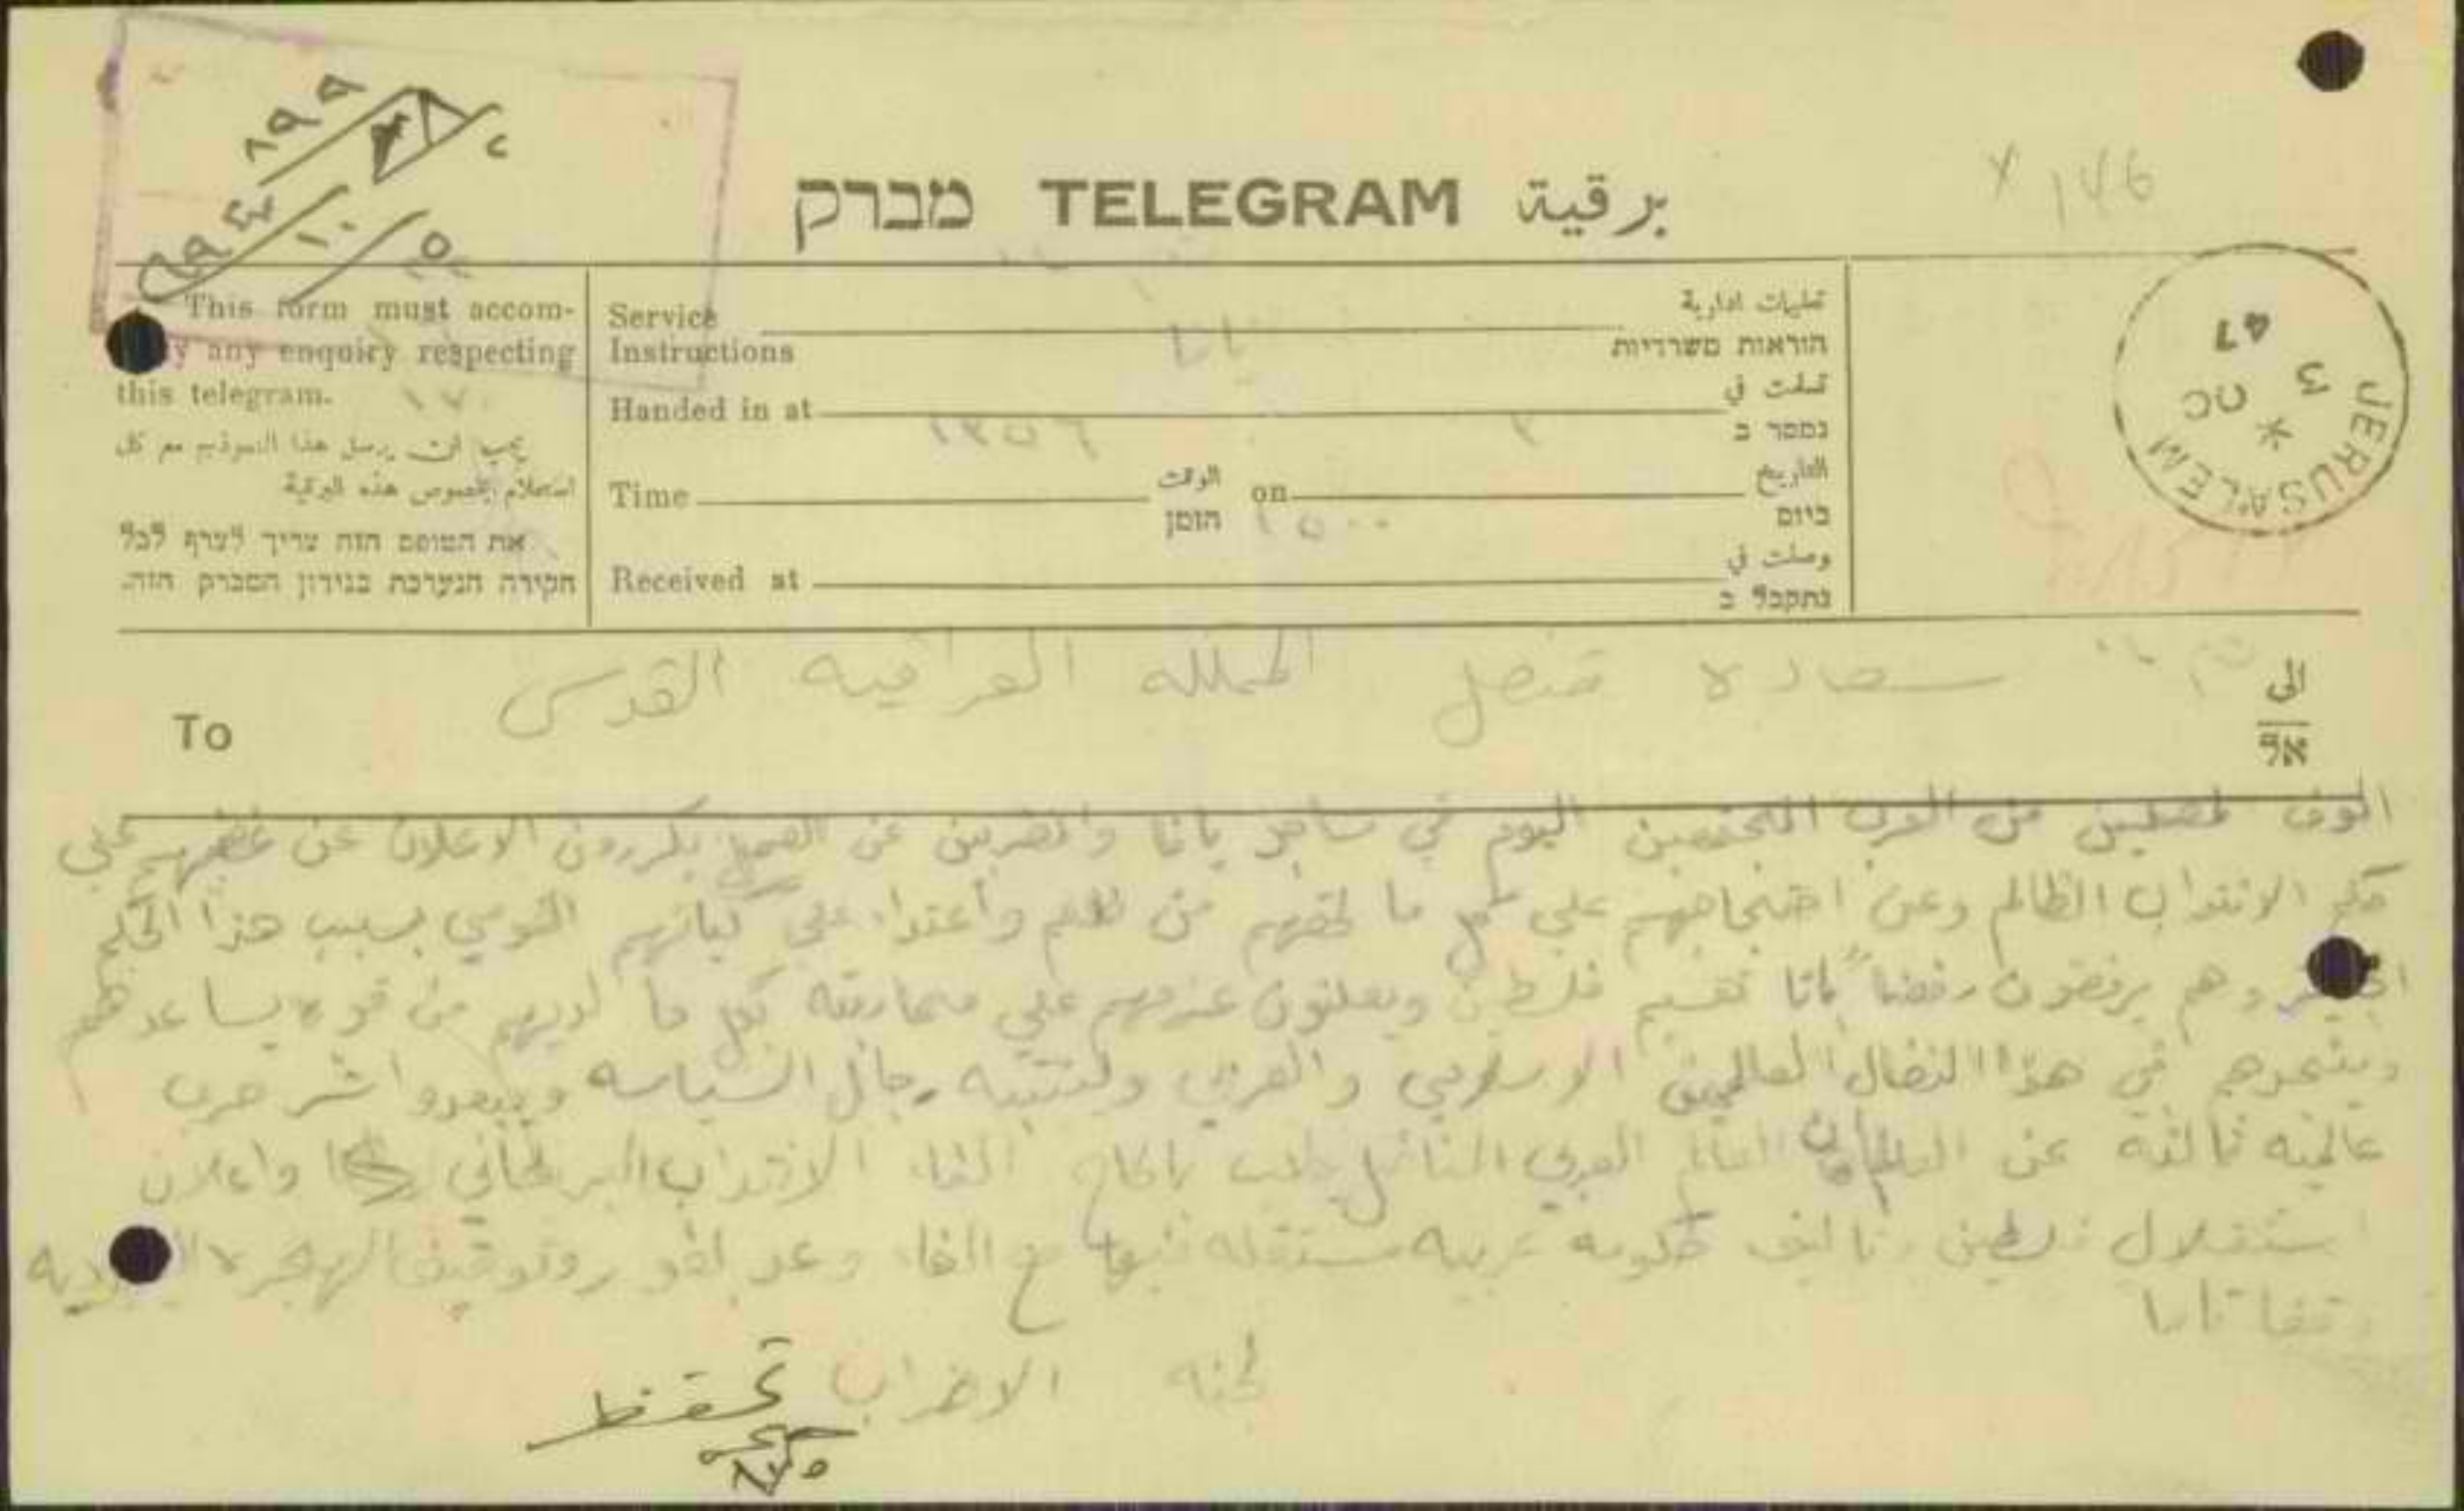 ٨٩٩
٢
٦٩٤
١٠
מברק TELEGRAM برقية
146
This form must accom-
any enquiry respecting
this telegram.
١٧٠
يجب ان يرسل هذا النموذج مع كل
استعلام بخصوص هذه البرقية
את הטופס הזה צריך לצרף לכל
חקירה הנערכת בנידון המברק הזה.
Service
Instructions
تعليمات ادارية
הוראות משרדיות
يافا
Handed in at
تسلمت في
נמסר ב
١٣٥٦
٣
Time
الوقت
הזמן
on
التاريخ
ביום
١٥٠٠
Received at
وصلت في
נתקבל ב
JERUSALEM
3 OC
47
To
سعاده قنصل المملكه العراقيه القدس
الى
אל
الوف من العرب المجتمعين اليوم في مساجد يافا والمضربين عن العمل يكررون الاعلان عن غضبهم على
حكم الانتداب الظالم وعن احتجاجهم على كل ما لحقهم من ظلم واعتداء على كيانهم القومي بسبب هذا الحكم
وهم يرفضون رفضاً باتا تقسيم فلسطين ويعلنون عزمهم على محاربته بكل ما لديهم من قوه يساعدهم
في هذا النضال العالمين الاسلامي والعربي ولينتبه رجال السياسه ويبعدوا شر حرب
عالميه ثالثه عن العالم العربي الغاء الانتداب البريطاني واعلان
استقلال فلسطين وتاليف حكومه عربيه مستقله فيها مع الغاء وعد بلفور وتوقيف الهجره اليهوديه
وقفا تاما
لجنه الاضراب
تحفظ